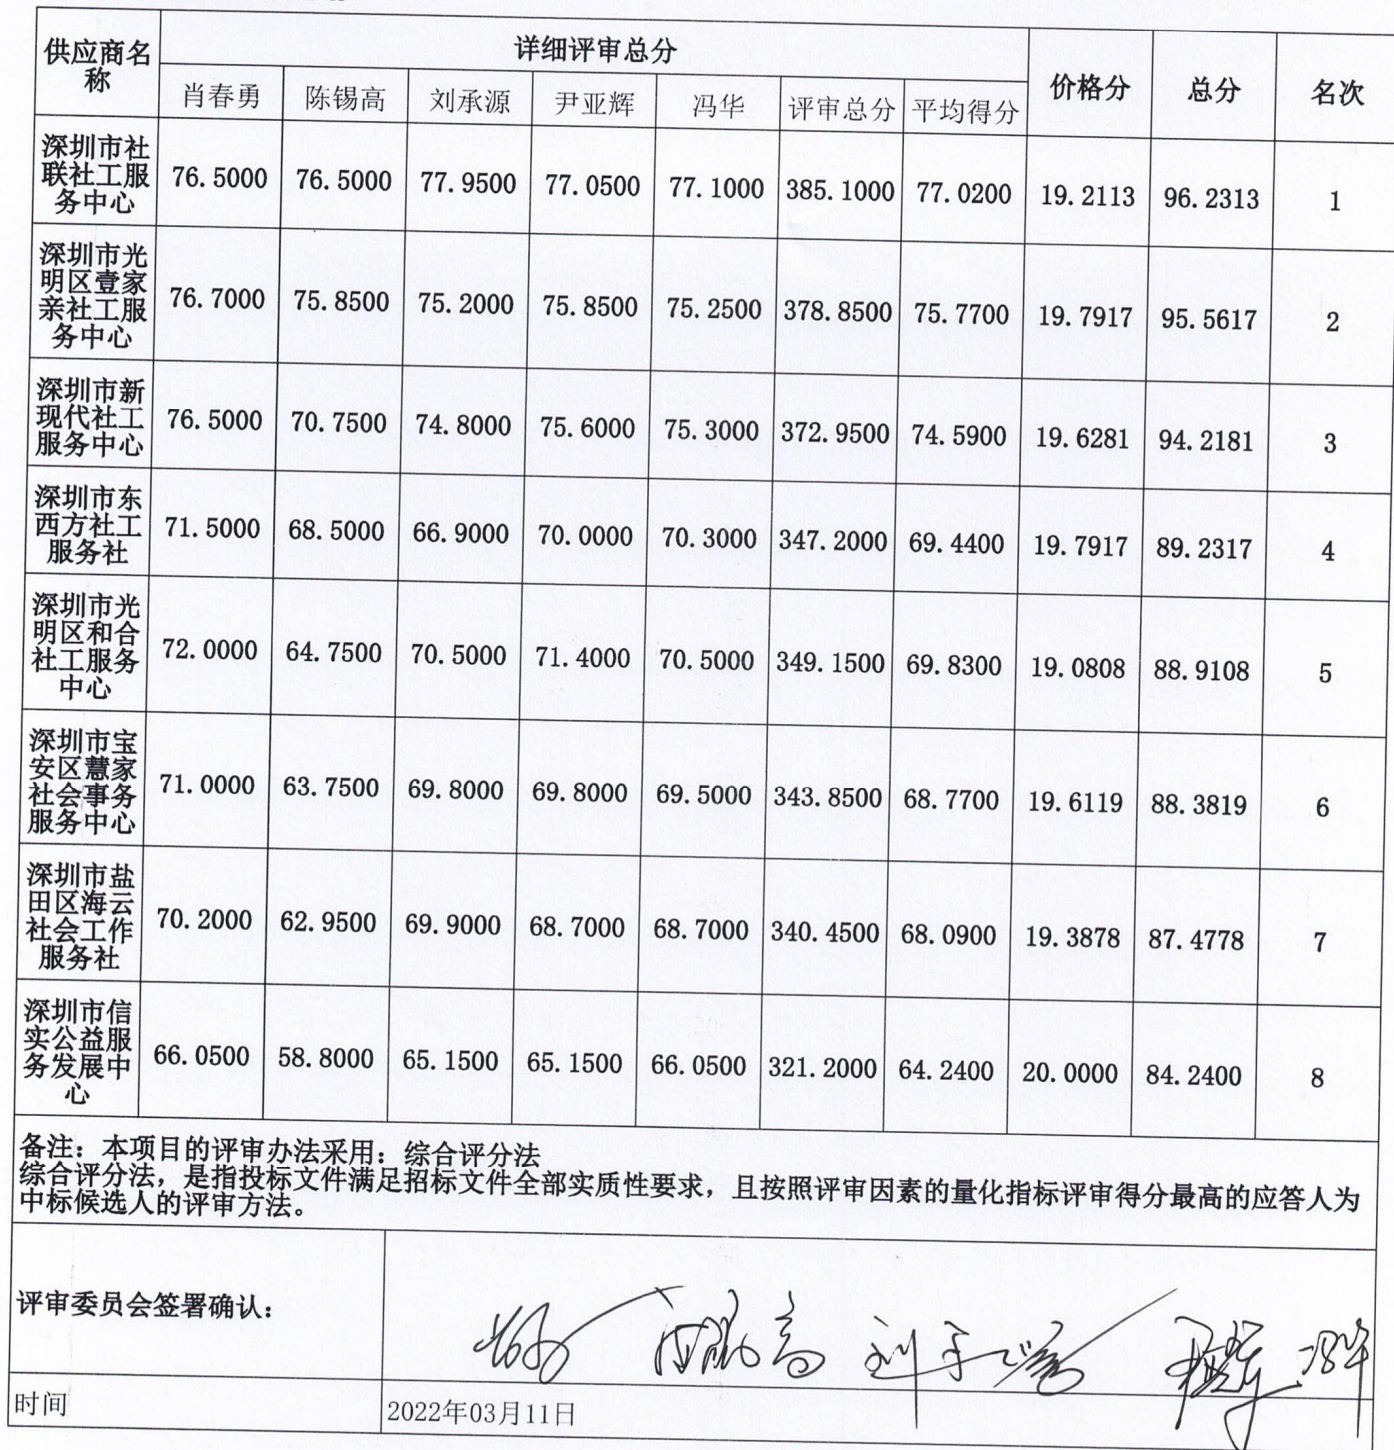 供应商名称 详细评审总分 价格分 总分 名次
肖春勇 陈锡高 刘承源 尹亚辉 冯华 评审总分 平均得分
深圳市社联社工服务中心 76.5000 76.5000 77.9500 77.0500 77.1000 385.1000 77.0200 19.2113 96.2313 1
深圳市光明区壹家亲社工服务中心 76.7000 75.8500 75.2000 75.8500 75.2500 378.8500 75.7700 19.7917 95.5617 2
深圳市新现代社工服务中心 76.5000 70.7500 74.8000 75.6000 75.3000 372.9500 74.5900 19.6281 94.2181 3
深圳市东西方社工服务社 71.5000 68.5000 66.9000 70.0000 70.3000 347.2000 69.4400 19.7917 89.2317 4
深圳市光明区和合社工服务中心 72.0000 64.7500 70.5000 71.4000 70.5000 349.1500 69.8300 19.0808 88.9108 5
深圳市宝安区慧家社会事务服务中心 71.0000 63.7500 69.8000 69.8000 69.5000 343.8500 68.7700 19.6119 88.3819 6
深圳市盐田区海云社会工作服务社 70.2000 62.9500 69.9000 68.7000 68.7000 340.4500 68.0900 19.3878 87.4778 7
深圳市信实公益服务发展中心 66.0500 58.8000 65.1500 65.1500 66.0500 321.2000 64.2400 20.0000 84.2400 8
备注：本项目的评审办法采用：综合评分法
综合评分法，是指投标文件满足招标文件全部实质性要求，且按照评审因素的量化指标评审得分最高的应答人为
中标候选人的评审方法。
评审委员会签署确认：
时间 2022年03月11日